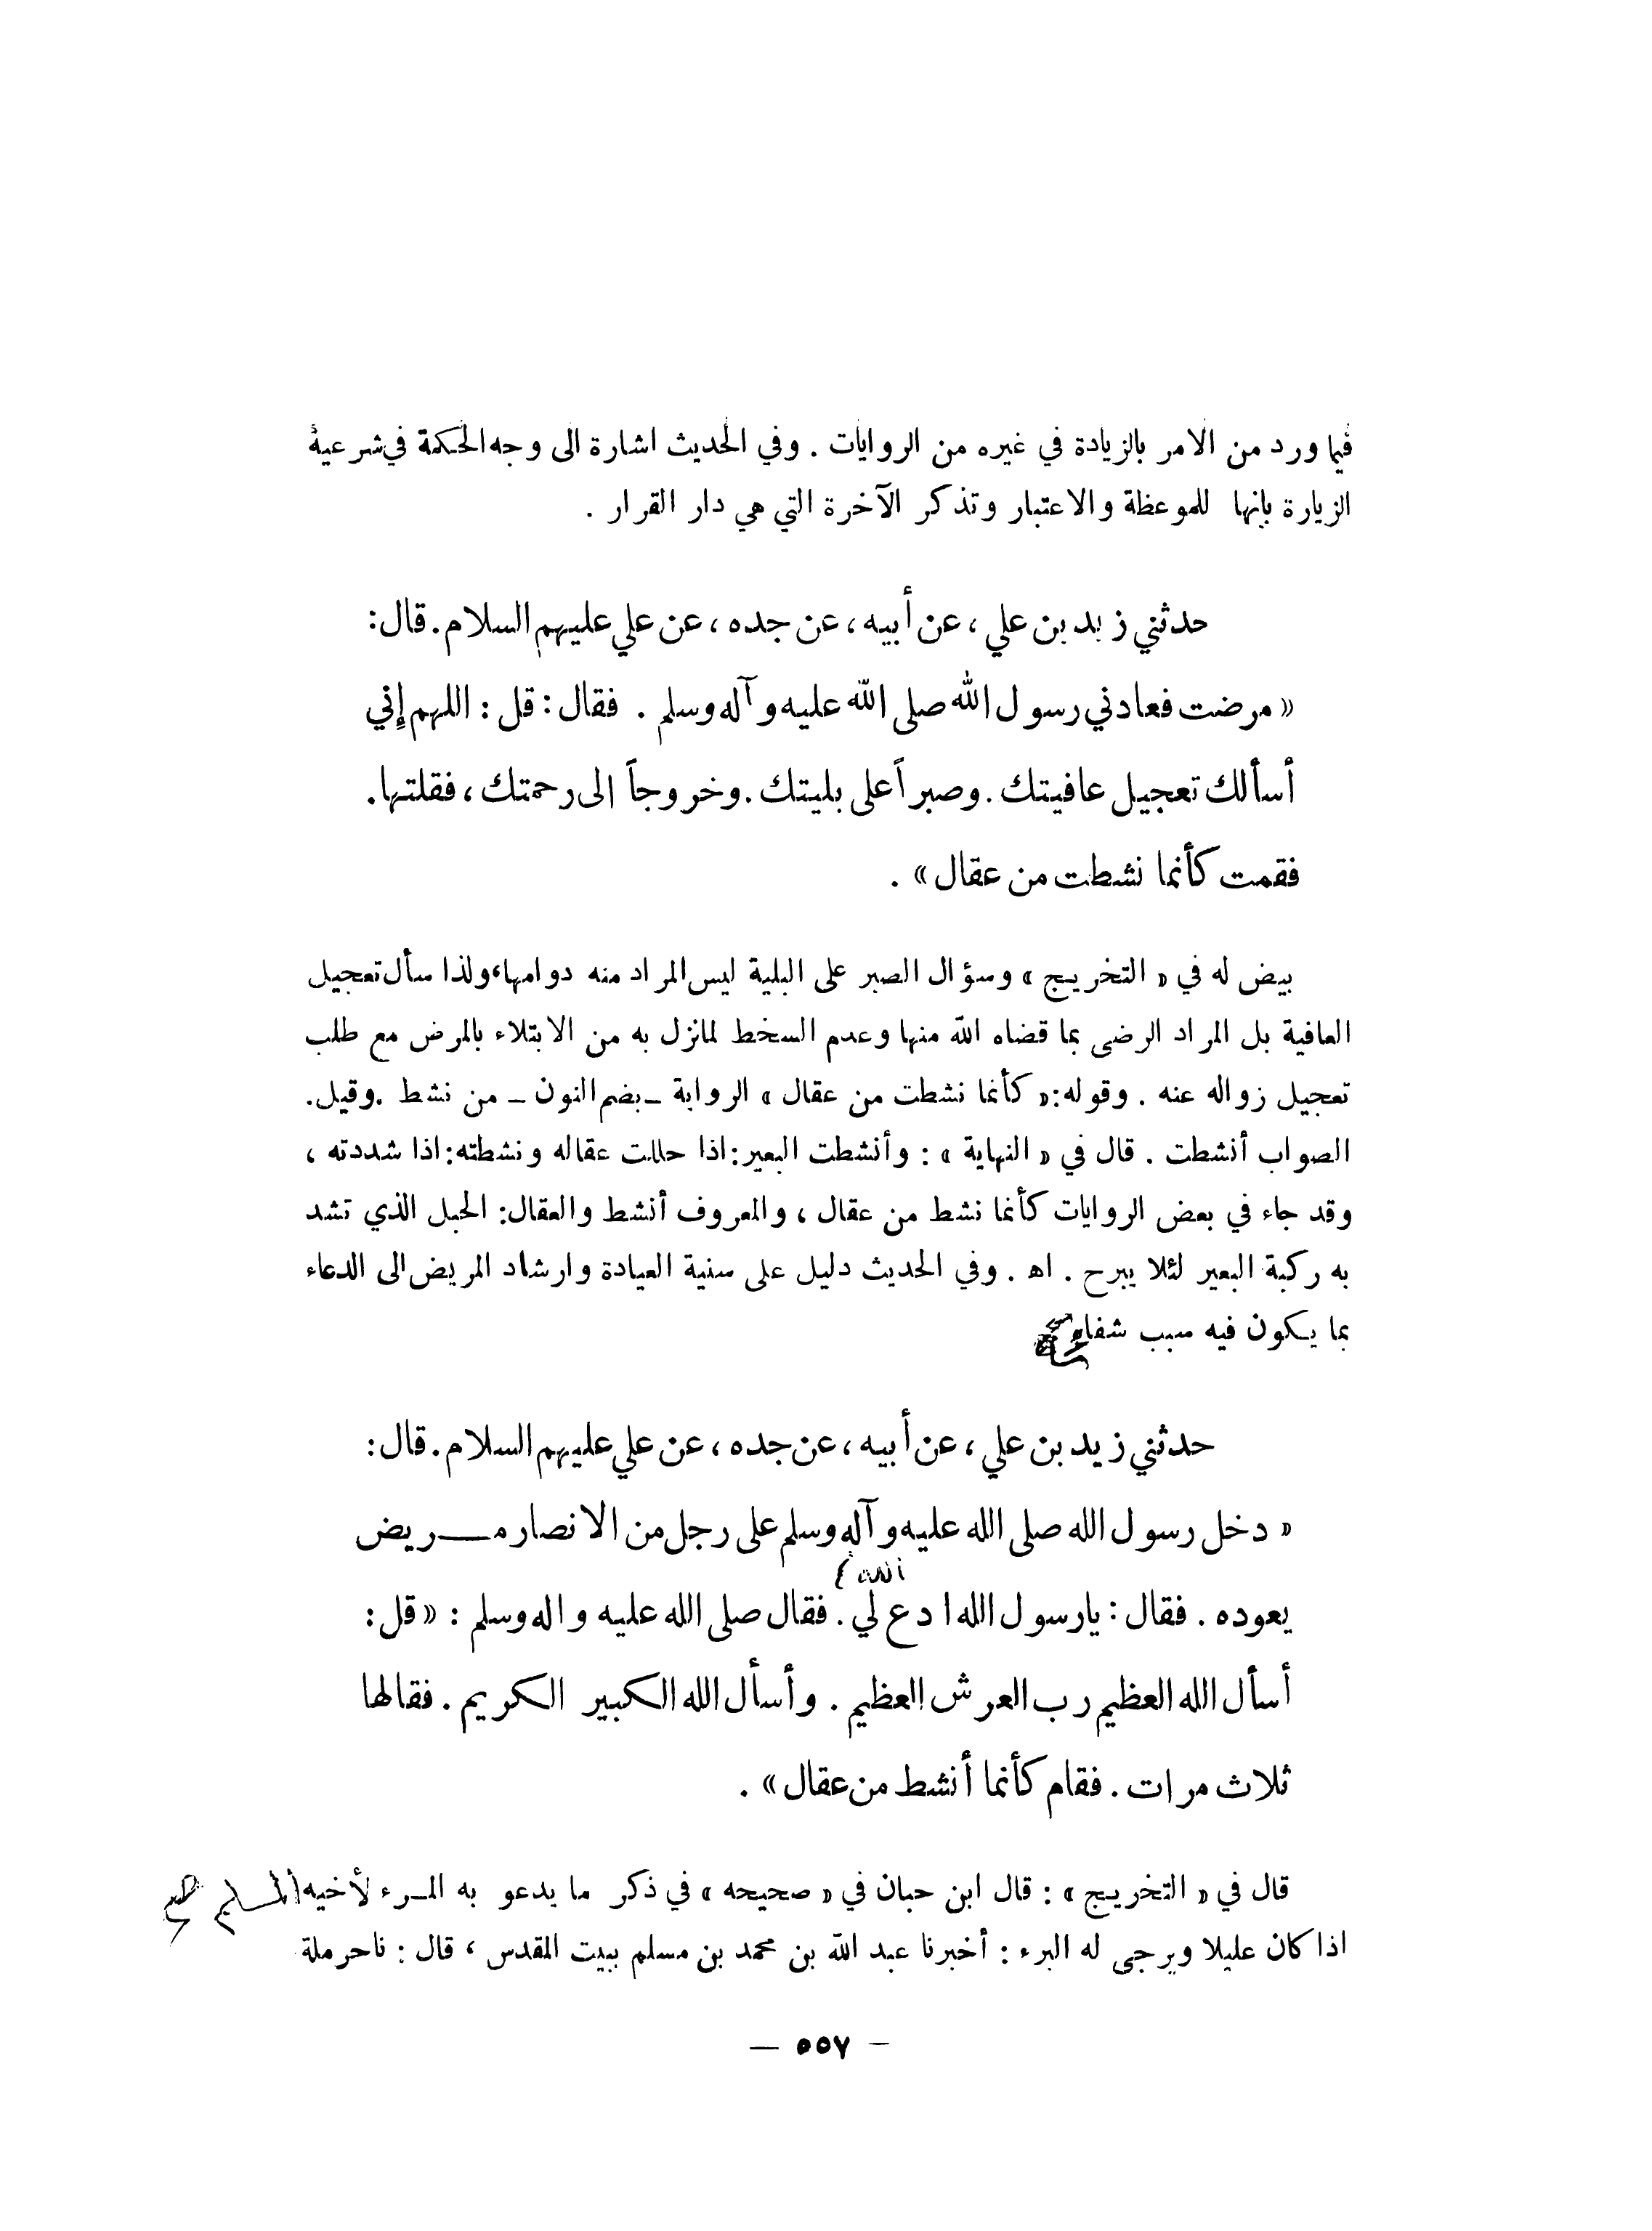 فيما ورد من الامر بالزيادة في غيره من الروايات . وفي الحديث اشارة الى وجه الحكمة في شرعية
الزيارة بإنها للموعظة والاعتبار وتذكر الآخرة التي هي دار القرار .
حدثني زيد بن علي ، عن أبيه ، عن جده ، عن علي عليهم السلام . قال :
« مرضت فعادني رسول الله صلى الله عليه وآله وسلم . فقال : قل : اللهم إني
أسألك تعجيل عافيتك . وصبراً على بليتك . وخروجاً الى رحمتك ، فقلتها .
فقمت كأنما نشطت من عقال » .
بيض له في « التخريج » وسؤال الصبر على البلية ليس المراد منه دوامها، ولذا سأل تعجيل
العافية بل المراد الرضى بما قضاه الله منها وعدم السخط لما نزل به من الابتلاء بالمرض مع طلب
تعجيل زواله عنه . وقوله : « كأنما نشطت من عقال » الرواية _ بضم النون _ من نشط . وقيل .
الصواب أنشطت . قال في « النهاية » : وأنشطت البعير : اذا حللت عقاله ونشطته : اذا شددته ،
وقد جاء في بعض الروايات كأنما نشط من عقال ، والمعروف أنشط والعقال : الحبل الذي تشد
به ركبة البعير لئلا يبرح . اه . وفي الحديث دليل على سنية العيادة وارشاد المريض الى الدعاء
بما يكون فيه سبب
حدثني زيد بن علي ، عن أبيه ، عن جده ، عن علي عليهم السلام . قال :
« دخل رسول الله صلى الله عليه وآله وسلم على رجل من الانصار مـــريض
الله
يعوده . فقال : يارسول الله ادع لي . فقال صلى الله عليه واله وسلم : « قل :
أسأل الله العظيم رب العرش العظيم . وأسأل الله الكبير الكريم . فقالها
ثلاث مرات . فقام كأنما أنشط من عقال » .
قال في « التخريج » : قال ابن حبان في « صحيحه » في ذكر ما يدعو به المـرء لأخيه المسلم صح
اذا كان عليلا ويرجى له البرء : أخبرنا عبد الله بن محمد بن مسلم ببيت المقدس ، قال : نا حرملة
– ٥٥٧ —